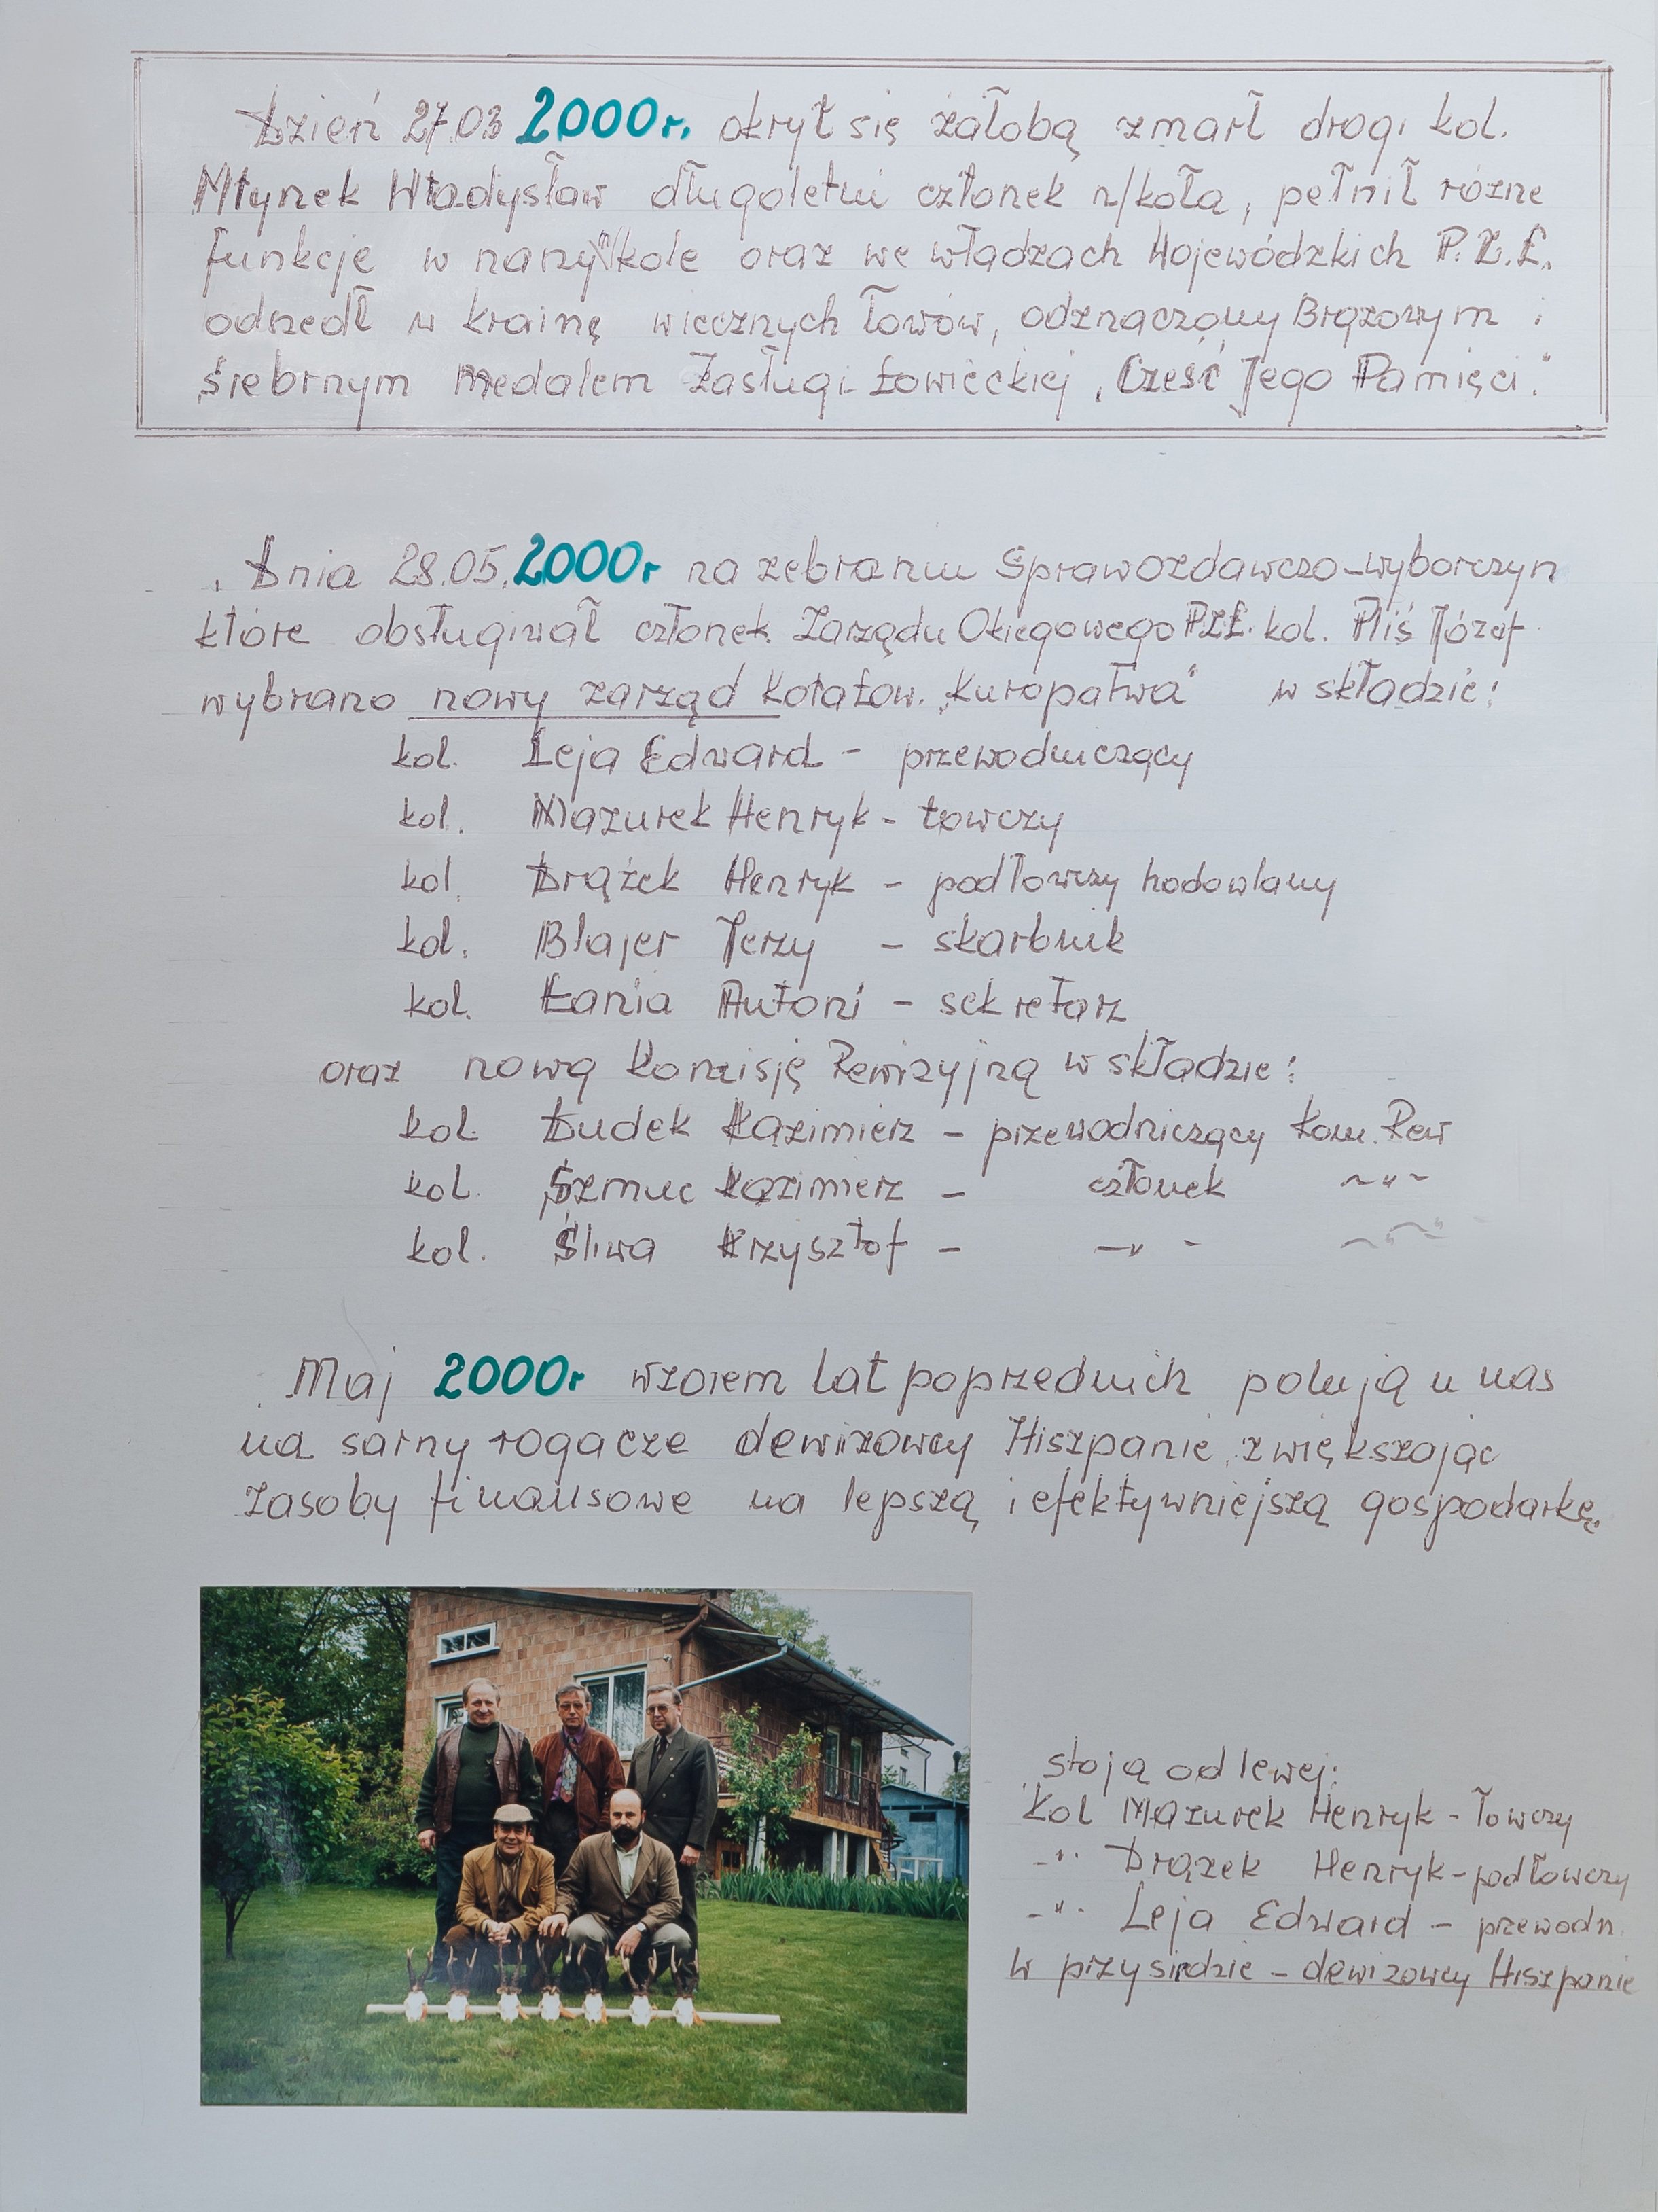 Dzień 27.03 2000r. okrył się żałobą zmarł drogi kol.
Młynek Władysław długoletni członek n/koła, pełnił różne
funkcje w naszym kole oraz we władzach Wojewódzkich P.Z.Ł.
odszedł w krainę wiecznych łowów, odznaczony Brązowym i
Srebrnym Medalem Zasługi Łowieckiej „Cześć Jego Pamięci."
Dnia 28.05.2000r na zebraniu Sprawozdawczo-wyborczym
które obsługiwał członek Zarządu Okręgowego PZŁ. kol. Pliś Józef
wybrano nowy zarząd Koła Łow. „Kuropatwa" w składzie:
kol. Leja Edward - przewodniczący
kol. Mazurek Henryk - łowczy
kol. Drążek Henryk - podłowczy hodowlany
kol. Blajer Jerzy - skarbnik
kol. Łania Antoni - sekretarz
oraz nową Komisję Rewizyjną w składzie:
kol. Dudek Kazimierz - przewodniczący Kom. Rew
kol. Szmuc Kazimierz - członek ~"~
kol. Śliwa Krzysztof - -"- ~"~
Maj 2000r wzorem lat poprzednich polują u nas
na sarny rogacze dewizowcy Hiszpanie, zwiększając
zasoby finansowe na lepszą i efektywniejszą gospodarkę.
stoją od lewej:
Kol Mazurek Henryk - łowczy
-"- Drążek Henryk - podłowczy
-"- Leja Edward - przewodn.
W przysiedzie - dewizowcy Hiszpanie